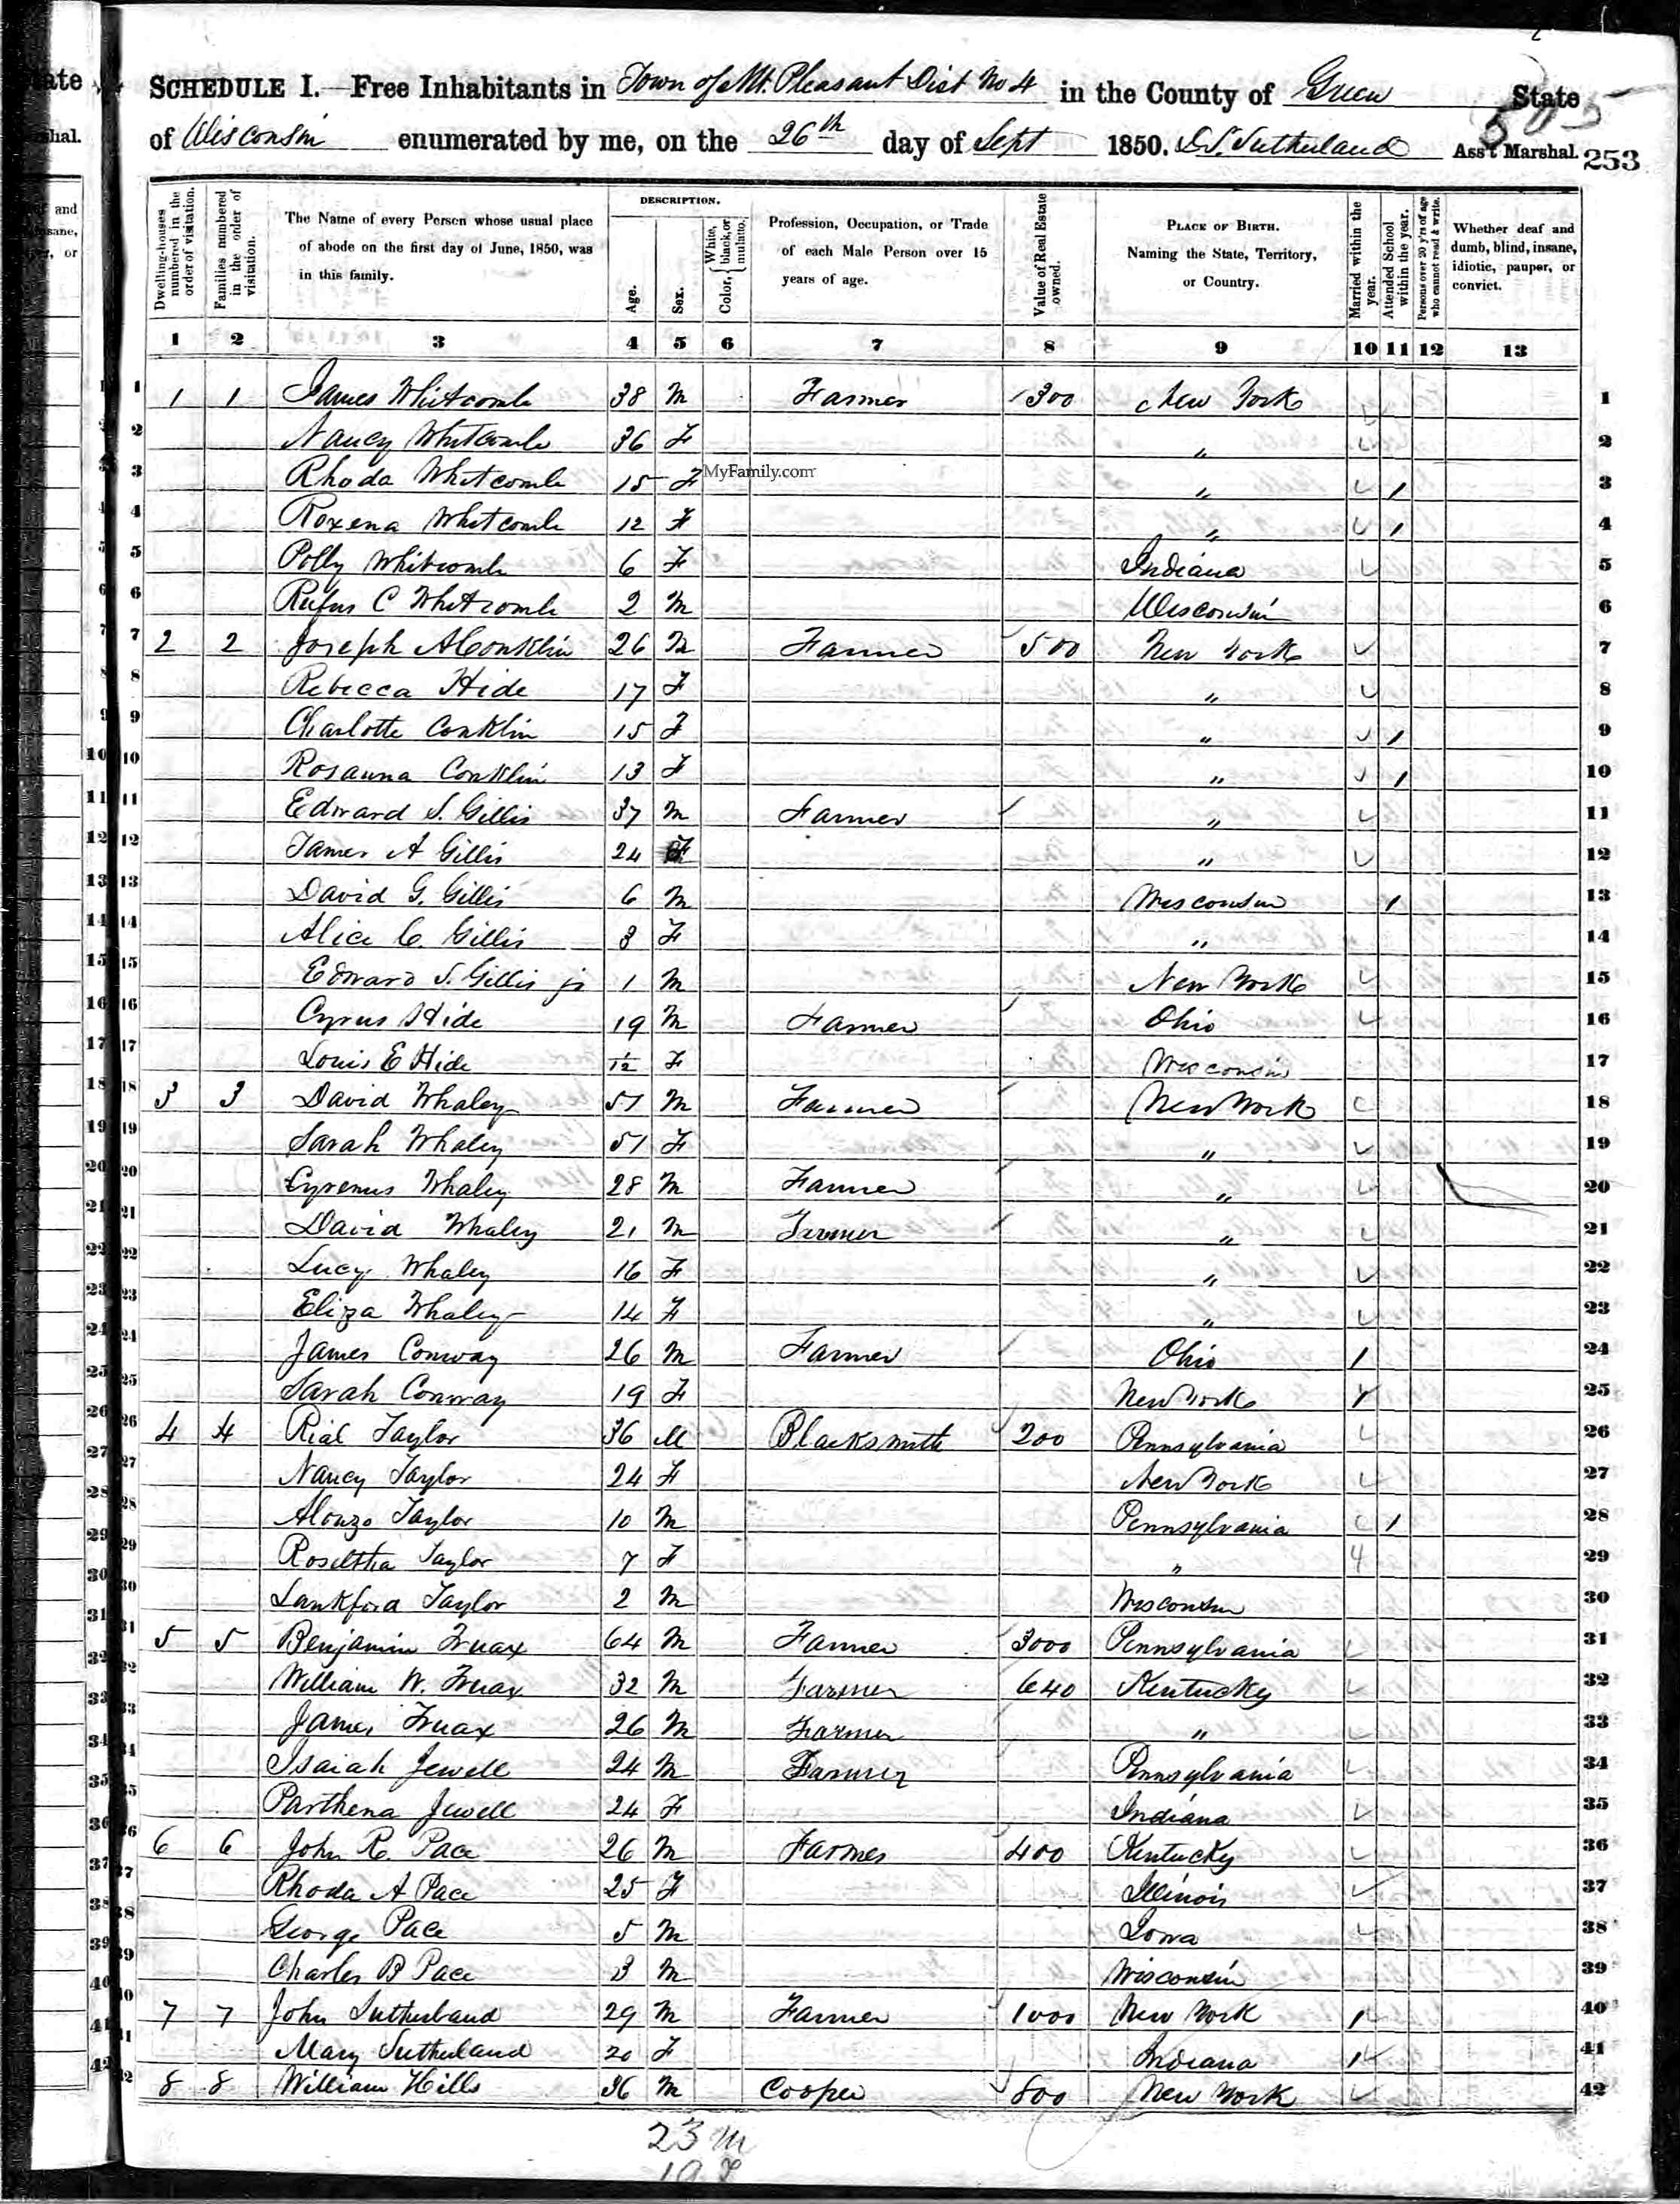 SCHEDULE I.—Free Inhabitants in Town of Mt. Pleasant Dist No 4 in the County of Green State
of Wisconsin enumerated by me, on the 26th day of Sept 1850. Sutherland Ass't Marshal. 253
Dwelling-houses numbered in the order of visitation.
Families numbered in the order of visitation.
The Name of every Person whose usual place of abode on the first day of June, 1850, was in this family.
DESCRIPTION.
Age.
Sex.
Color, { White, black, or mulatto.
Profession, Occupation, or Trade of each Male Person over 15 years of age.
Value of Real Estate owned.
PLACE OF BIRTH. Naming the State, Territory, or Country.
Married within the year.
Attended School within the year.
Persons over 20 y'rs of age who cannot read & write.
Whether deaf and dumb, blind, insane, idiotic, pauper, or convict.
1 2 3 4 5 6 7 8 9 10 11 12 13
1 1 1 James Whitcomb 38 M Farmer 300 New York 1
2 Nancy Whitcomb 36 F " 2
3 Rhoda Whitcomb 15 F MyFamily.com " 1 3
4 Roxena Whitcomb 12 F " 1 4
5 Polly Whitcomb 6 F Indiana 5
6 Rufus C Whitcomb 2 M Wisconsin 6
7 2 2 Joseph A Conklin 26 M Farmer 500 New York 7
8 Rebecca Hide 17 F " 8
9 Charlotte Conklin 15 F " 1 9
10 Rosanna Conklin 13 F " 1 10
11 Edward S. Gillis 37 M Farmer " 11
12 James A Gillis 24 F " 12
13 David G. Gillis 6 M Wisconsin 1 13
14 Alice C. Gillis 3 F " 14
15 Edward S. Gillis jr 1 M New York 15
16 Cyrus Hide 19 M Farmer Ohio 16
17 Louis E Hide 1/12 F Wisconsin 17
18 3 3 David Whaley 51 M Farmer New York 18
19 Sarah Whaley 51 F " 19
20 Cyrenus Whaley 28 M Farmer " 20
21 David Whaley 21 M Farmer " 21
22 Lucy Whaley 16 F " 22
23 Eliza Whaley 14 F " 23
24 James Conway 26 M Farmer Ohio 1 24
25 Sarah Conway 19 F New York 1 25
26 4 4 Rial Taylor 36 M Blacksmith 200 Pennsylvania 26
27 Nancy Taylor 24 F New York 27
28 Alonzo Taylor 10 M Pennsylvania 1 28
29 Roseltha Taylor 7 F " 29
30 Lankford Taylor 2 M Wisconsin 30
31 5 5 Benjamin Truax 64 M Farmer 3000 Pennsylvania 31
32 William W. Truax 32 M Farmer 640 Kentucky 32
33 James Truax 26 M Farmer " 33
34 Isaiah Jewell 24 M Farmer Pennsylvania 34
35 Parthena Jewell 24 F Indiana 35
36 6 6 John R. Pace 26 M Farmer 400 Kentucky 36
37 Rhoda A Pace 25 F Illinois 37
38 George Pace 5 M Iowa 38
39 Charles B Pace 3 M Wisconsin 39
40 7 7 John Sutherland 29 M Farmer 1000 New York 1 40
41 Mary Sutherland 20 F Indiana 1 41
42 8 8 William Hills 36 M Cooper 800 New York 42
23 M
19 F